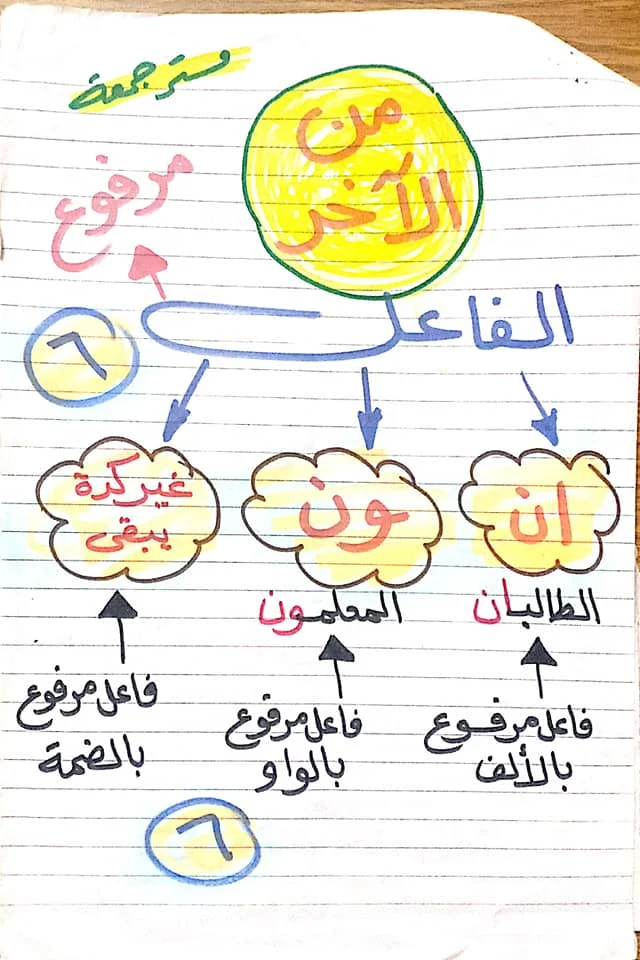 مترجمة
من
الآخر
مرفوع
الفاعل
٦
ان
ون
غير كدة
يبقى
الطالبان
المعلمون
فاعل مرفوع
بالألف
فاعل مرفوع
بالواو
فاعل مرفوع
بالضمة
٦